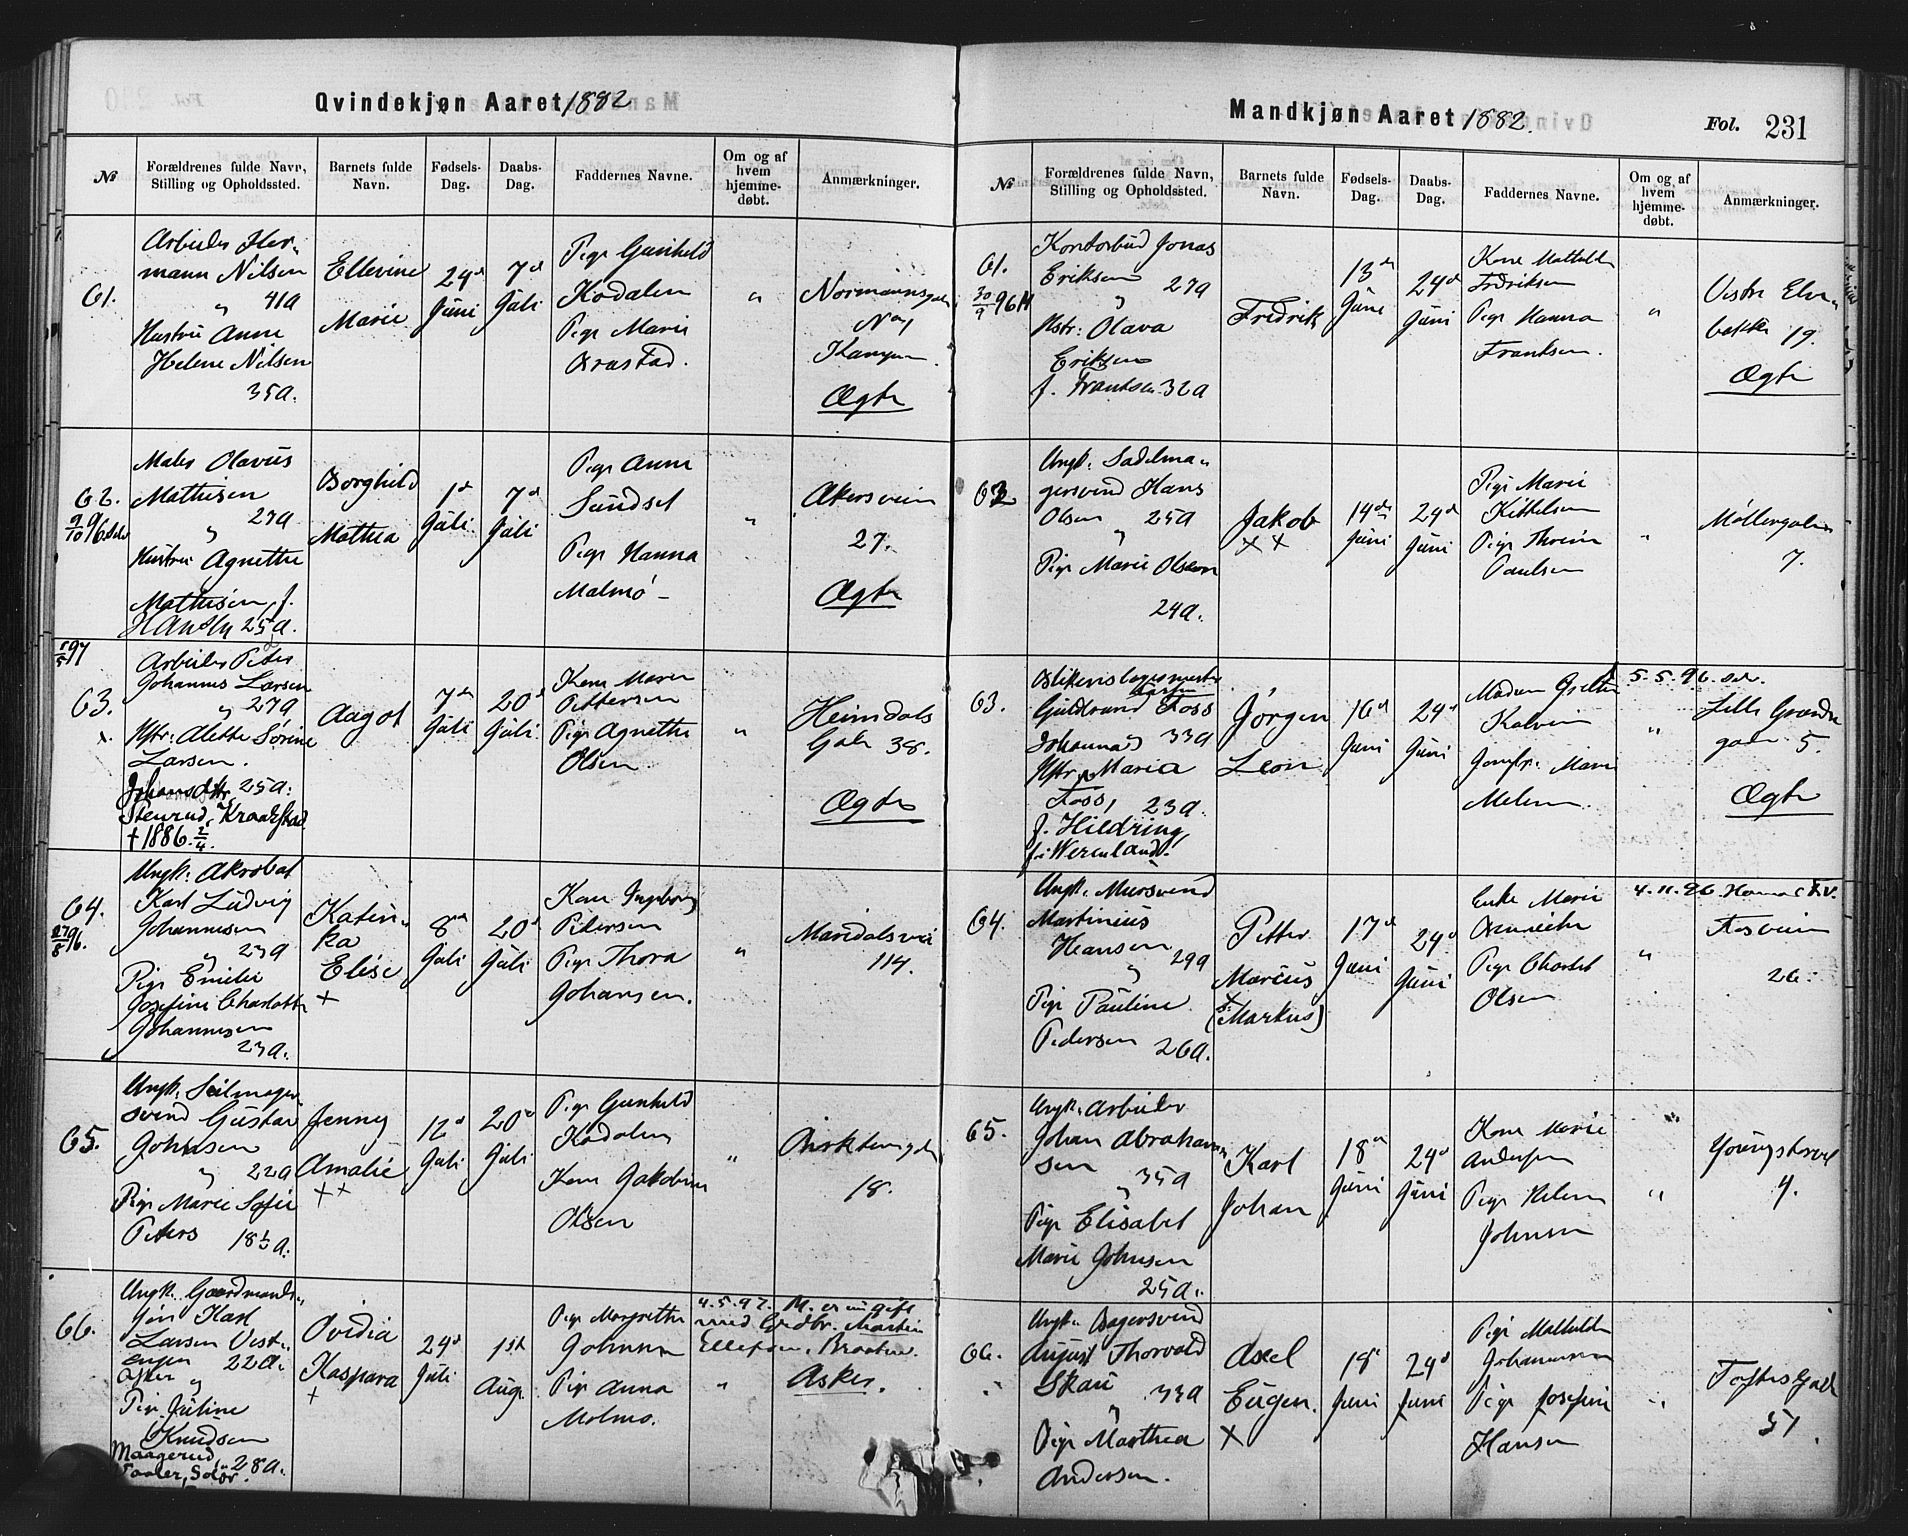 Qvindekjøn Aaret 1882
№
Forældrenes fulde Navn, Stilling og Opholdssted.
Barnets fulde Navn.
Fødsels-Dag.
Daabs-Dag.
Faddernes Navne.
Om og af hvem hjemme-døbt.
Anmærkninger.
61.
Arbeider Her-
mann Nilsen
" 41a
Hustru Anne
Helene Nilsen
35a.
Ellevine
Marie
24d
Juni
7d
Juli
Pige Gunhild
Kodalen
Pige Marie
"
Normannsgade
Kampen
Ægte
62.
9/10 96
Maler Olavus
Mathisen
" 27a
Hustru Agnethe
Mathisen, f.
Hansen 25a.
Borghild
Mathea
1d
Juli
7d
Juli
Pige Anne
Sundset
Pige Hanna
Malmö
"
Akersveien
27.
Ægte
63.
Arbeider Peter
Johannes Larsen
" 27a
Hstr: Alette Sørine
Larsen.
25a.
Stenrud, Kraakstad
† 1886. 2/4.
Aagot
7de
Juli
20d
Juli
Kone Maren
Pettersen
Pige Agnethe
Olsen
"
Heimdals
Gade 38.
Ægte
64.
27/8 96.
Ungk. Akrobat
Karl Ludvig
Johannesen
" 23a
Pige Emilie
Josefine Charlotte
Johannesen
23a.
Katin-
ka
Elise
+
8de
Juli
20d
Juli
Kone Ingeborg
Petersen
Pige Thora
Johansen.
"
Maridalsvei
114.
65.
Ungk. Seilmager-
svend Gustav
Johnsen
" 22a
Pige Marie Sofie
Peters 18½a.
Jenny
Amalie
++
12d
Juli
20d
Juli
Pige Gunhild
Kodalen
Kone Jakobine
Olsen
"
18.
66.
Ungk. Gaardmands-
søn Karl
Larsen Vest-
engen 22a.
Asker "
Pige Juline
Knudsen
Maagerud, 28a.
Vaaler, Solør.
Ovidia
Kaspara
+
24d
Juli
1st
Aug.
Pige Margrethe
Johnsen
Pige Anna
Malmö.
4.5.97. M. er nu gift
med Grdbr. Martin
Ellefsen, Braaten
"
Asker.
Mandkjøn Aaret 1882.
Fol. 231
№
Forældrenes fulde Navn, Stilling og Opholdssted.
Barnets fulde Navn.
Fødsels-Dag.
Daabs-Dag.
Faddernes Navne.
Om og af hvem hjemme-døbt.
Anmærkninger.
61.
30/9 96
Kontorbud Jonas
Eriksen 27a
"
Hstr: Olava
Eriksen
f. Frantsen 32a
Fredrik
13de
Juni
24d
Juni
Kone Mathilde
Fredriksen
Pige Hanna
Frantsen.
"
Vestre Elve-
bakke 19.
Ægte
62
Ungk. Sadelma-
gersvend Hans
Olsen 25a
"
Pige Marie Olsen
24a.
Jakob
++
14de
Juni
24d
Juni
Pige Marie
Kittelsen
Pige Thrine
Paulsen
"
Møllergaden
7.
63.
Guldbrand Foss
Johannes 33a
Hstr. Maria
Foss, 23a.
f. Hildring,
fr. Wermland.
Jørgen
Leon
16d
Juni
24d
Juni
Madam Grethe
Jomfr. Marie
Melem.
5.5.96.
"
Lille Grændse
gade 5.
Ægte
64.
Ungk. Mursvend
Martinius
Hansen
" 29a
Pige Pauline
Pedersen 26a.
Petter
Marcus
(Markus)
17d
Juni
24d
Juni
Enke Marie
Pige Charlot
Olsen
4.11.96.
"
Aasveien
26.
65.
Ungk. Arbeider
Johan Abraham-
sen
" 35a
Pige Elisabet
Marie Johnsen
25a.
Karl
Johan
18d
Juni
24d
Juni
Kone Marie
Andersen
Pige Helene
Johnsen
"
Youngstorvet
4.
66.
Ungk. Bagersvend
August Thorvald
Skau
" 33a
Pige Marthea
Andersen.
Axel
Eugen.
+
18d
Juni
24d
Juni
Pige Mathilde
Johannesen
Pige Josefine
Hansen
"
Toftes Gade